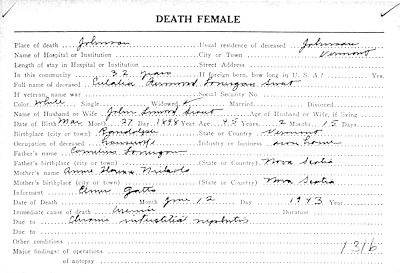 DEATH FEMALE
Place of death Johnson Usual residence of deceased Johnson
Name of Hospital or Institution City or Town Vermont
Length of stay in Hospital or Institution Street Address
In this community 32 years If foreign born, how long in U. S. A.? Yrs.
Full name of deceased Eulalia
If veteran, name war Social Security No.
Color White Single Widowed ✓ Married Divorced
Name of Husband or Wife John Age of Husband or Wife, if living
Date of Birth Mar Month 27 Day 1898 Year Age 45 Years 2 Months 15 Days
Birthplace (city or town) Randolph State or Country Vermont
Occupation of deceased Housewife Industry or business own home
Father's name Cornelius
Father's birthplace (city or town) (State or Country) Nova Scotia
Mother's name Annie
Mother's birthplace (city or town) (State or Country) Nova Scotia
Informant
Date of Death Month June 12 Day 1943 Year
Immediate cause of death Duration
Due to Chronic interstitial nephritis
Due to
Other conditions
Major findings: of operations 1316
of autopsy